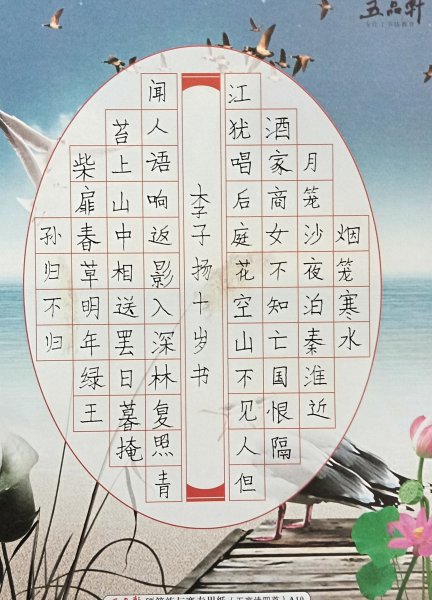 五品轩
烟笼寒水
月笼沙夜泊秦淮近
酒家商女不知亡国恨隔
江犹唱后庭花空山不见人但
李子扬十岁书
闻人语响返影入深林复照青
苔上山中相送罢日暮掩
柴扉春草明年绿王
孙归不归